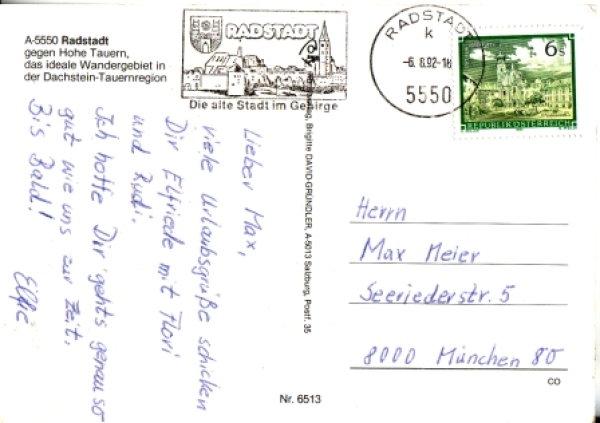 A-5550 Radstadt
gegen Hohe Tauern,
das ideale Wandergebiet in
der Dachstein-Tauernregion
RADSTADT
Die alte Stadt im Gebirge
RADSTADT
k
-6. 8.92-18
5550
6 S
REPUBLIK ÖSTERREICH
Lieber Max,
viele Urlaubsgrüße schicken
Dir Elfriede mit Flori
und Rudi.
Ich hoffe Dir gehts genau so
gut wie uns zur Zeit.
Bis Bald!
Elfie
Brigitte DAVID-GRÜNDLER, A-5013 Salzburg, Postf. 35
Herrn
Max Meier
Seeriederstr. 5
8000 München 80
CO
Nr. 6513